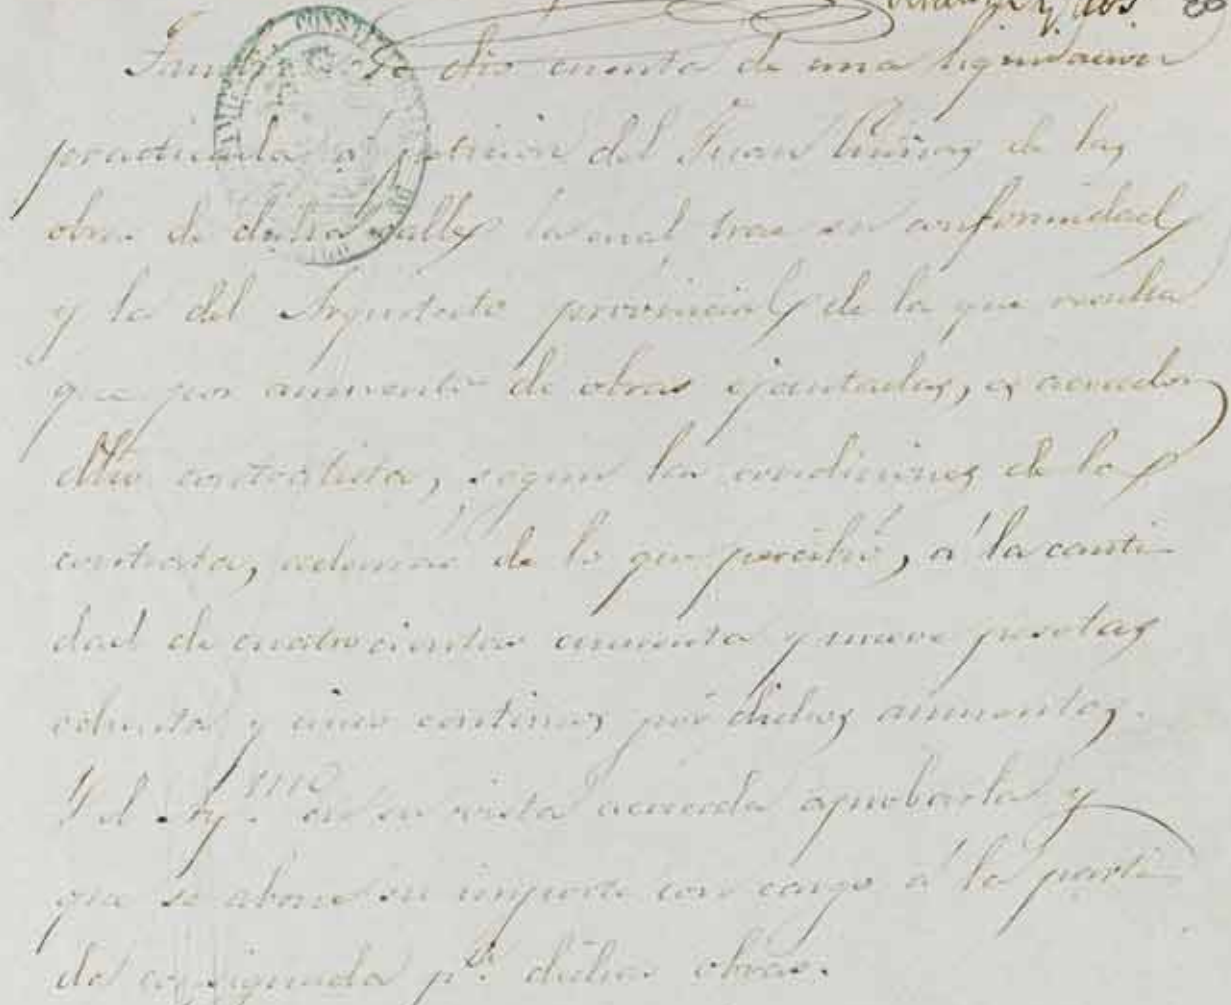 y dos
CONSTI
Tambien se dio cuenta de una liquidacion
practicada a peticion del Juan de las
obras de dicha calle la cual trae su conformidad
y la del Arquitecto provincial de la que resulta
que por aumento de obras ejecutadas, es acreedor
dho contratista, segun las condiciones de la
contrata, ademas de lo que percibió, á la canti-
dad de cuatrocientas cincuenta y nueve pesetas
ochenta y cinco centimos por dichos aumentos.
Y el Ay.mo en su vista acuerda aprobarla y
que se abone su importe con cargo á la parti-
da consignada p.a dichas obras.